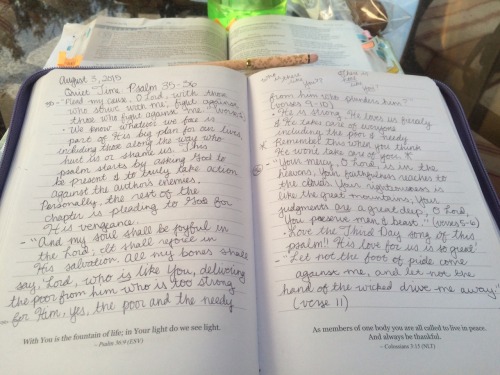 August 3, 2015
Quiet Time Psalm 35-36
35- "Plead my cause, O Lord, with those
who strive with me; fight against
those who fight against me." (verse 1)
· We know whatever we face is
part of His big plan for our lives,
including those along the way who
hurt us or shame us. This
psalm starts by asking God to
be present & to truly take action
against the author's enemies.
Personally, the rest of the
chapter is pleading to God for
His vengeance.
- "And my soul shall be joyful in
the Lord; It shall rejoice in
His salvation. All my bones shall
say, 'Lord, who is like You, delivering
the poor from him who is too strong
for him, yes, the poor and the needy
With You is the fountain of life; in Your light do we see light.
~ Psalm 36:9 (ESV)
from him who plunders him?'"
(verses 9-10)
· He is strong. He loves us fiercely
& He takes care of everyone
including the poor & needy.
* Remember this when you think
He won't take care of you. *
36- "Your mercy, O Lord, is in the
heavens; Your faithfulness reaches to
the clouds. Your righteousness is
like the great mountains; Your
judgments are a great deep; O Lord,
You preserve man & beast." (verses 5-6)
· Love the Third Day song of this
psalm!! His love for us is so great!
- "Let not the foot of pride come
against me, and let not the
hand of the wicked drive me away."
(verse 11)
As members of one body you are all called to live in peace.
And always be thankful.
~ Colossians 3:15 (NLT)